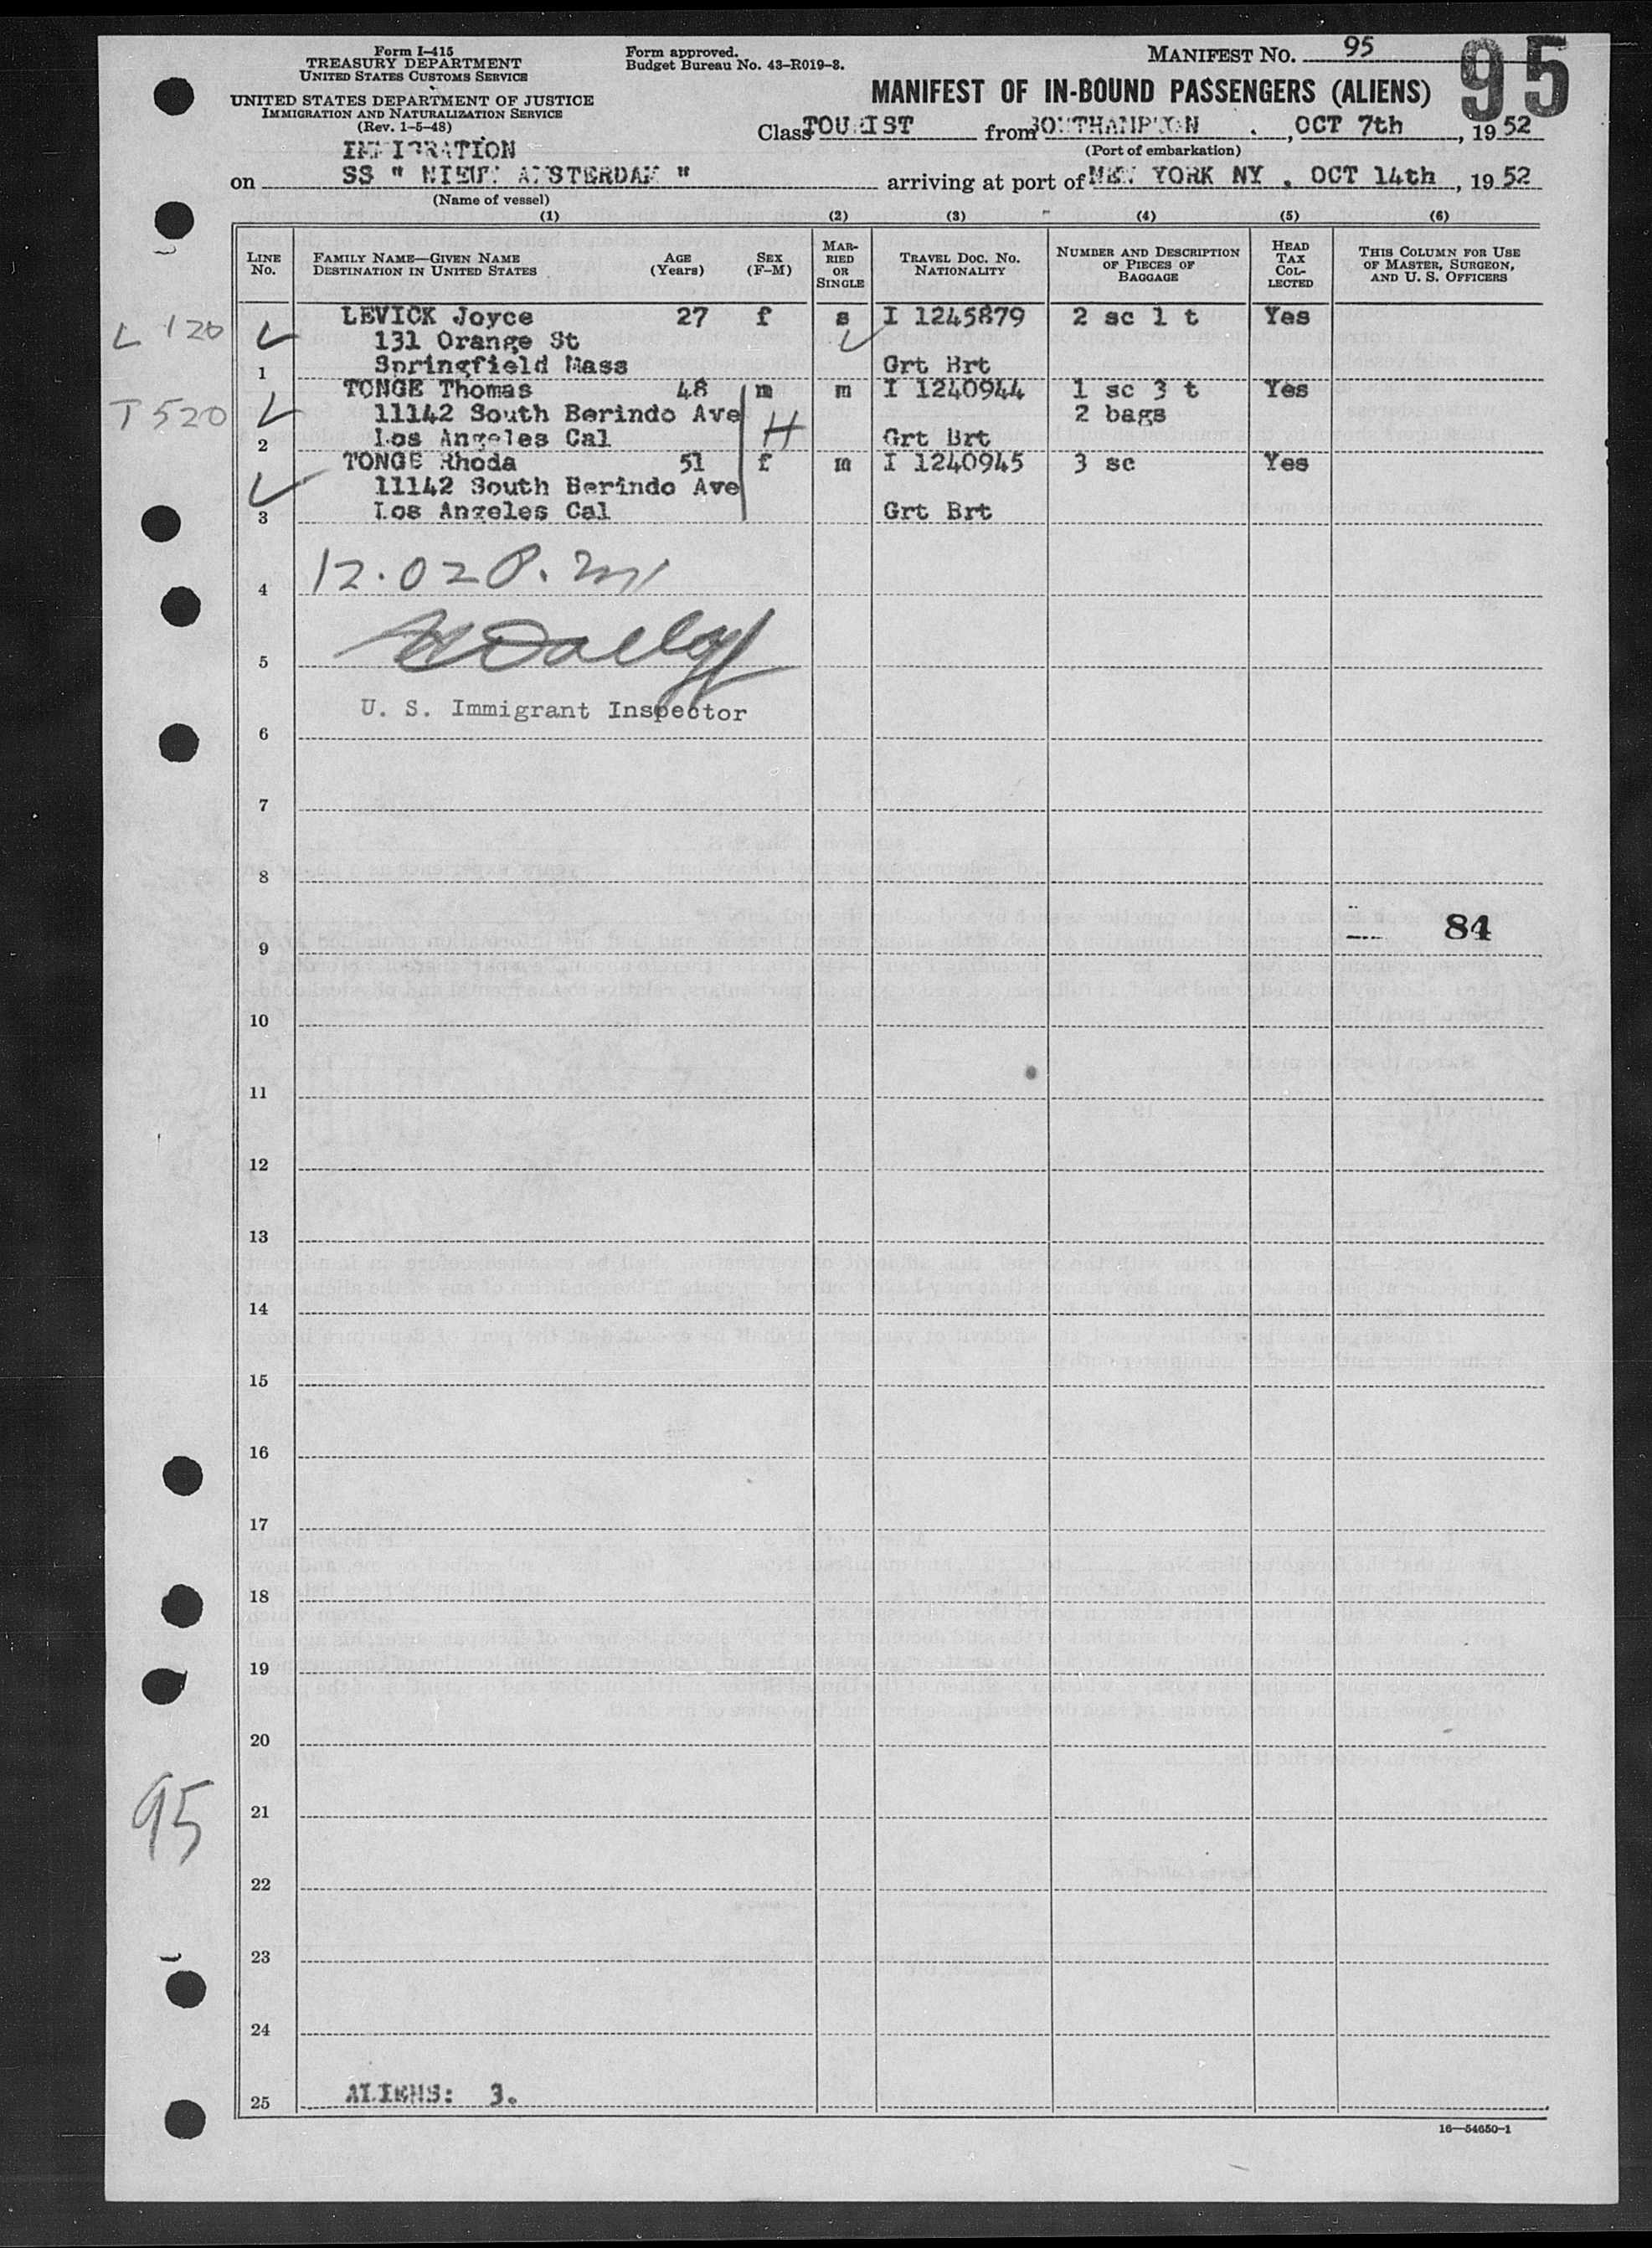 Form I-415
TREASURY DEPARTMENT
UNITED STATES CUSTOMS SERVICE
UNITED STATES DEPARTMENT OF JUSTICE
IMMIGRATION AND NATURALIZATION SERVICE
(Rev. 1-5-48)
Form approved.
Budget Bureau No. 43-R019-3.
MANIFEST NO. 95
95
MANIFEST OF IN-BOUND PASSENGERS (ALIENS)
Class TOURIST from SOUTHAMPTON , OCT 7th , 19 52
(Port of embarkation)
IMMIGRATION
on SS " NIEUW AMSTERDAM " arriving at port of NEW YORK NY , OCT 14th , 19 52
(Name of vessel)
(1) (2) (3) (4) (5) (6)
LINE No. FAMILY NAME—GIVEN NAME DESTINATION IN UNITED STATES AGE (Years) SEX (F-M) MARRIED OR SINGLE TRAVEL DOC. NO. NATIONALITY NUMBER AND DESCRIPTION OF PIECES OF BAGGAGE HEAD TAX COLLECTED THIS COLUMN FOR USE OF MASTER, SURGEON, AND U. S. OFFICERS
L 120 LEVICK Joyce 27 f s I 1245879 2 sc 1 t Yes
131 Orange St
1 Springfield Mass Grt Brt
T 520 TONGE Thomas 48 m m I 1240944 1 sc 3 t Yes
11142 South Berindo Ave H 2 bags
2 Los Angeles Cal Grt Brt
TONGE Rhoda 51 f m I 1240945 3 sc Yes
11142 South Berindo Ave
3 Los Angeles Cal Grt Brt
4 12.02 P.m
5
U. S. Immigrant Inspector
6
7
8
84
9
10
11
12
13
14
15
16
17
18
19
20
95
21
22
23
24
25 ALIENS: 3.
16—54650-1